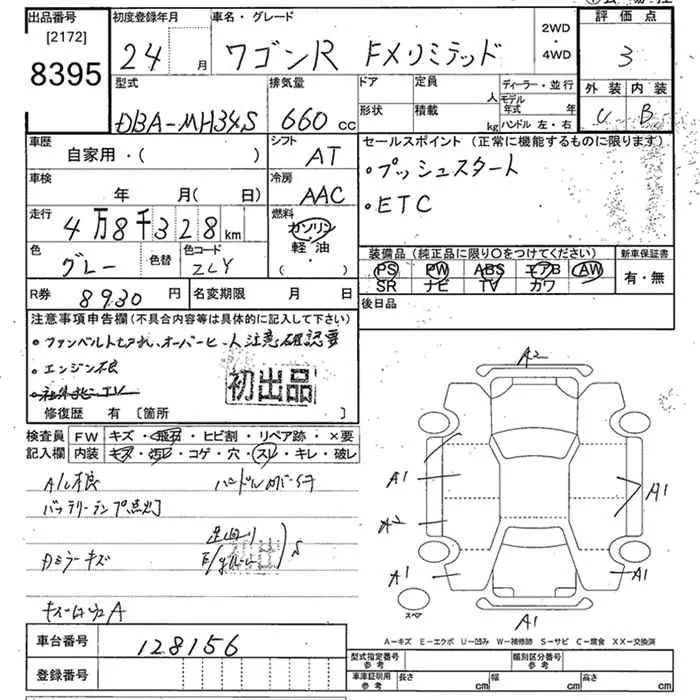 出品番号
[2172]
8395
初度登録年月
24 月
車名・グレード
ワゴンR FXリミテッド
2WD
・
4WD
評価点
3
外装 内装
B
型式
DBA-MH34S
排気量
660 cc
ドア
形状
定員 人
積載 kg
ディーラー・並行
モデル年式 年
ハンドル 左・右
車歴
自家用・( )
シフト
AT
車検
年 月( 日)
冷房
AAC
走行
4万8千328km
燃料
ガソリン
軽油・
( )
色
グレー
色替
色コード
ZLY
R券 8930 円
名変期限 月 日
セールスポイント (正常に機能するものに限ります)
・プッシュスタート
・ETC
装備品 (純正品に限り〇をつけてください)
PS PW ABS エアB AW
SR ナビ TV カワ
新車保証書
有・無
後日品
注意事項申告欄 (不具合内容等は具体的に記入して下さい)
・ファンベルト切れ、オーバーヒート注意 確認要
・エンジン不良
・社外ナビ・TV
初出品
修復歴 有 [箇所 ]
検査員記入欄
FW キズ・飛石・ヒビ割・リペア跡・×要
内装 キズ・汚レ・コゲ・穴・スレ・キレ・破レ
A/C不良
バッテリーランプ点灯
Dミラーキズ
S
A2
A1
A2
A1
A1
A1
A1
スペア
A－キズ E－エクボ U－凹み W－補修跡 S－サビ C－腐食 XX－交換済
車台番号 128156
登録番号
型式指定番号 参考
類別区分番号 参考
車庫証明用 参考
長さ cm
幅 cm
高さ cm